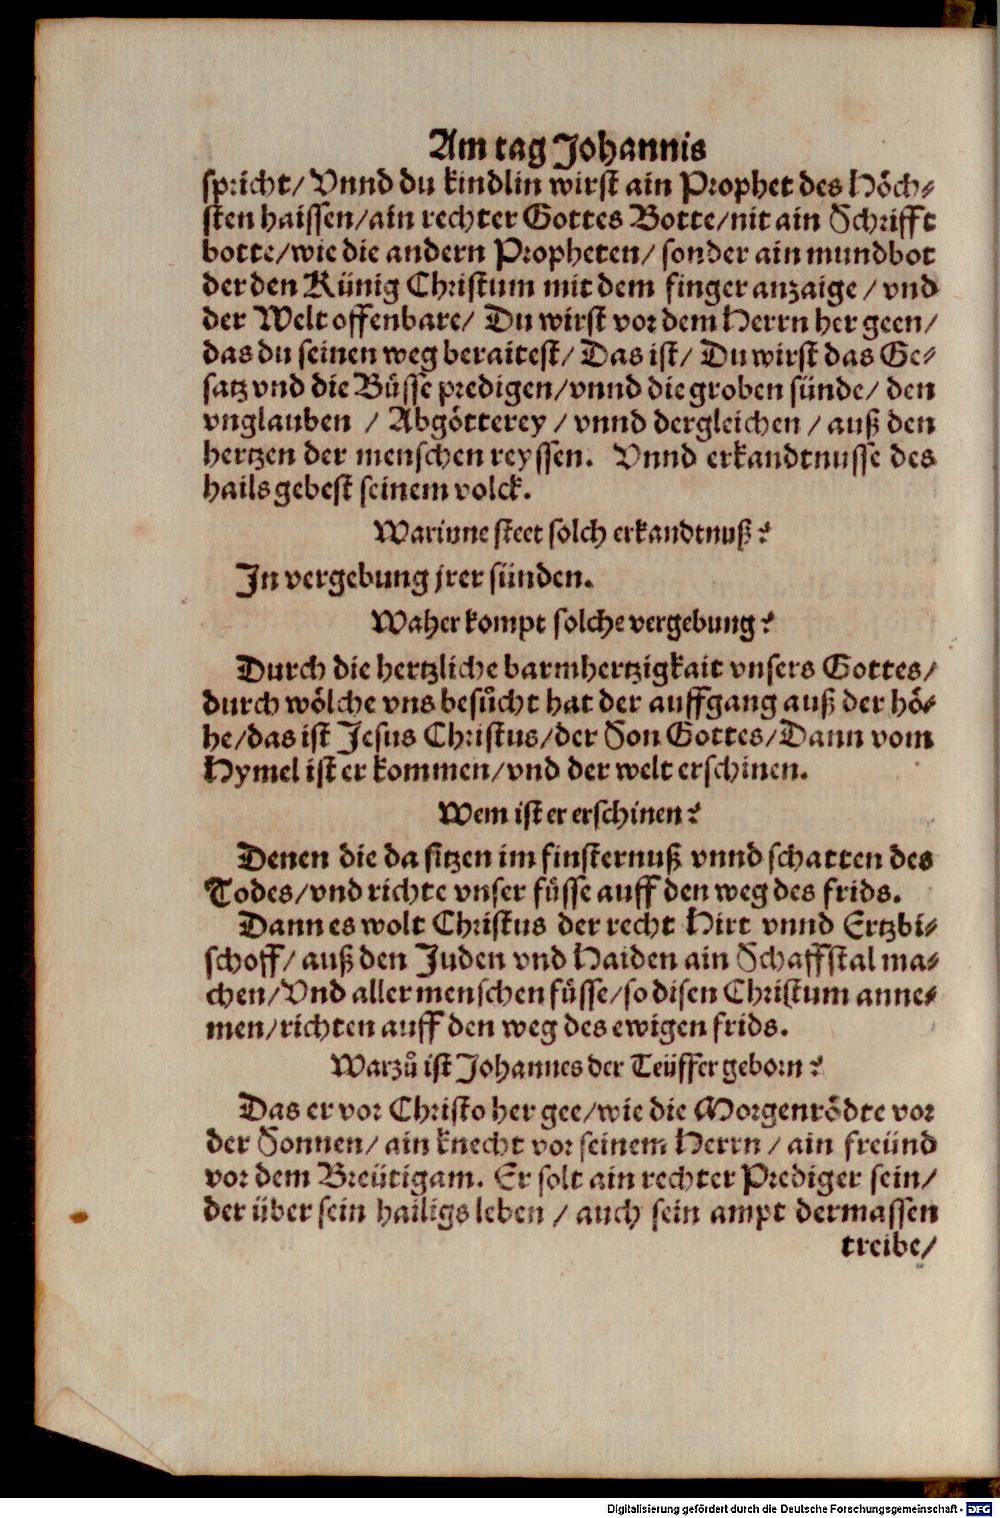 Am tag Johannis
spricht/ Vnnd du kindlin wirst ain Prophet des Höch⸗
sten haissen/ain rechter Gottes Botte/nit ain Schrifft
botte/wie die andern Propheten/ sonder ain mundbot
der den Künig Christum mit dem finger anzaige / vnd
der Welt offenbare/ Du wirst vor dem Herrn her geen/
das du seinen weg beraitest/ Das ist/ Du wirst das Ge⸗
satz vnd die Bůsse predigen/vnnd die groben sünde/ den
vnglauben / Abgötterey / vnnd dergleichen / auß den
hertzen der menschen reyssen. Vnnd erkandtnusse des
hails gebest seinem volck.
Warinne steet solch erkandtnuß?
In vergebung jrer sünden.
Waher kompt solche vergebung?
Durch die hertzliche barmhertzigkait vnsers Gottes/
durch wölche vns besůcht hat der auffgang auß der hö⸗
he/das ist Jesus Christus/der Son Gottes/Dann vom
Hymel ist er kommen/vnd der welt erschinen.
Wem ist er erschinen?
Denen die da sitzen im finsternuß vnnd schatten des
Todes/vnd richte vnser füsse auff den weg des frids.
Dann es wolt Christus der recht Hirt vnnd Ertzbi⸗
schoff/ auß den Juden vnd Haiden ain Schaffstal ma⸗
chen/Vnd aller menschen füsse/so disen Christum anne⸗
men/richten auff den weg des ewigen frids.
Warzů ist Johannes der Teüffer geborn?
Das er vor Christo her gee/wie die Morgenrödte vor
der Sonnen/ ain knecht vor seinem Herrn / ain freünd
vor dem Breütigam. Er solt ain rechter Prediger sein/
der über sein hailigs leben / auch sein ampt dermassen
treibe/
Digitalisierung gefördert durch die Deutsche Forschungsgemeinschaft - DFG